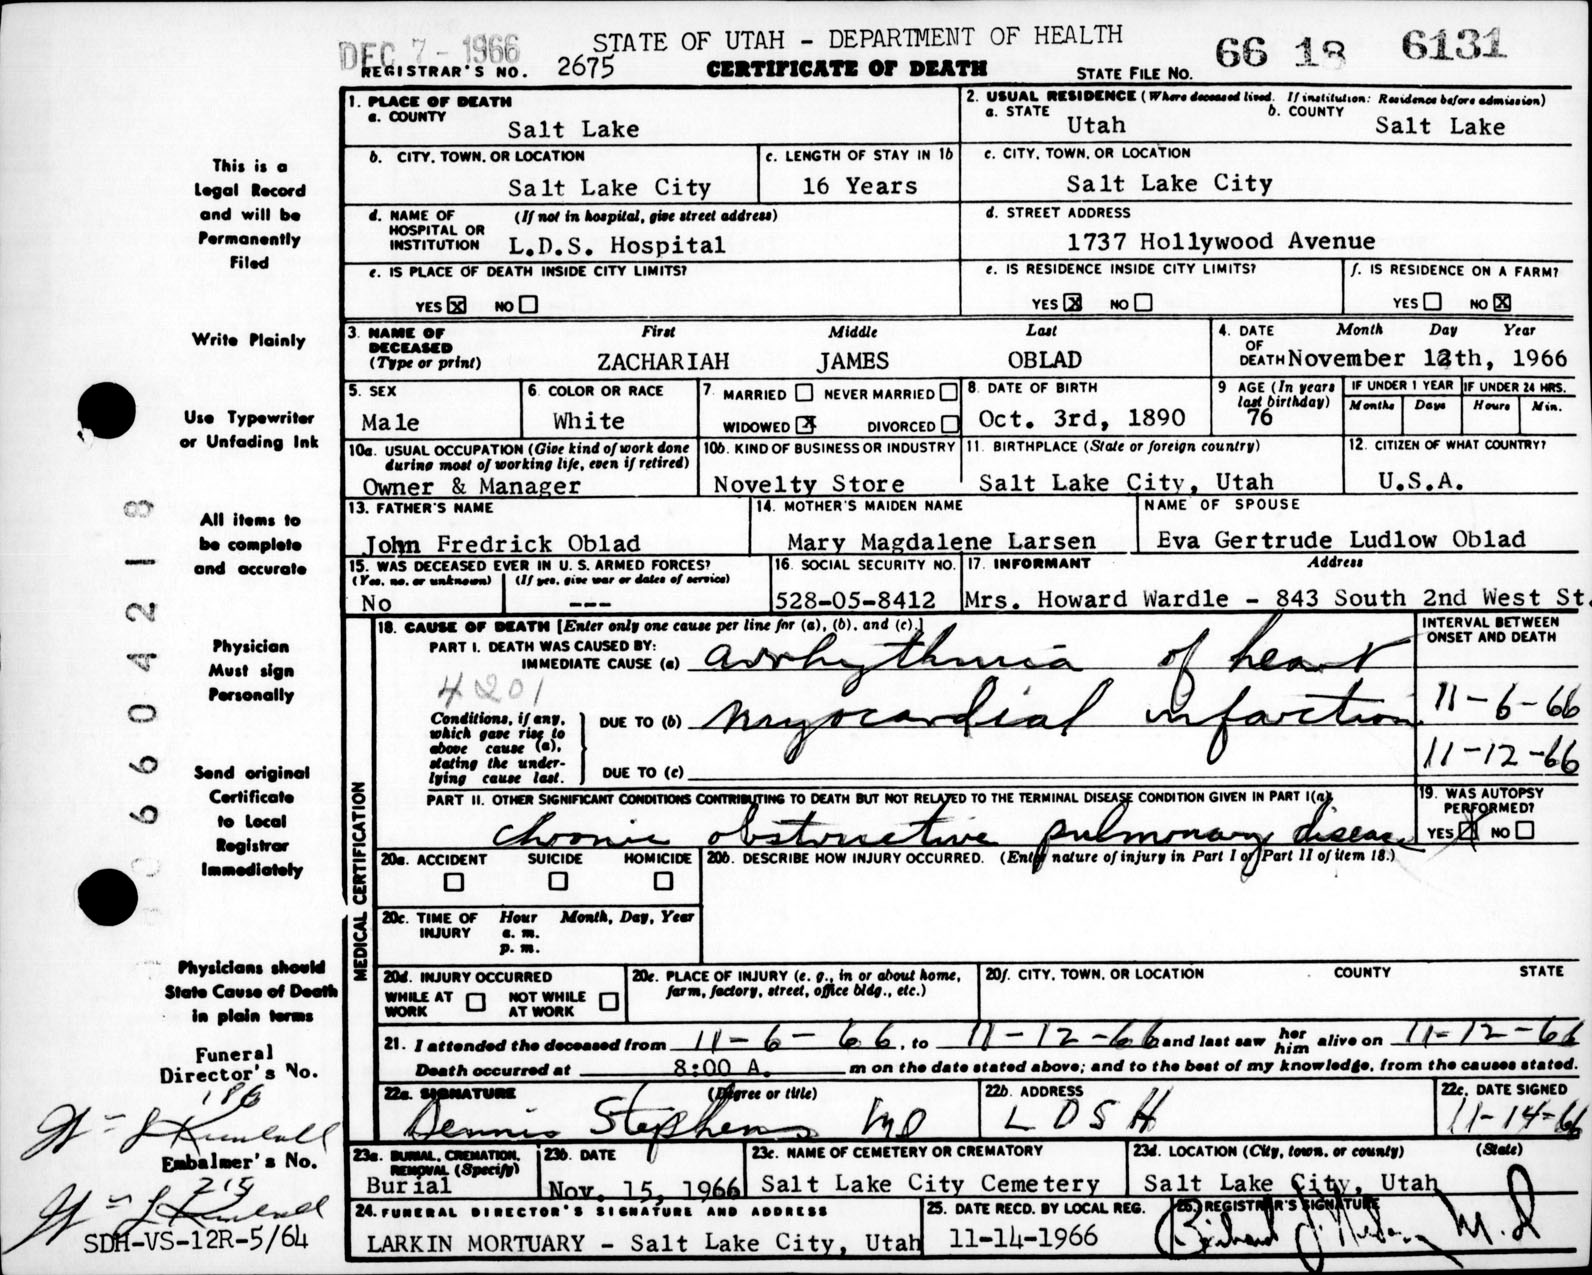 DEC 7 - 1966
STATE OF UTAH - DEPARTMENT OF HEALTH
66 18 6131
REGISTRAR'S NO. 2675
CERTIFICATE OF DEATH
STATE FILE NO.
This is a
Legal Record
and will be
Permanently
Filed
Write Plainly
Use Typewriter
or Unfading Ink
All items to
be complete
and accurate
Physician
Must sign
Personally
Send original
Certificate
to Local
Registrar
Immediately
Physicians should
State Cause of Death
in plain terms
Funeral
Director's No.
186
Embalmer's No.
215
SDH-VS-12R-5/64
1. PLACE OF DEATH
a. COUNTY
Salt Lake
2. USUAL RESIDENCE (Where deceased lived. If institution: Residence before admission)
a. STATE Utah b. COUNTY Salt Lake
b. CITY, TOWN, OR LOCATION
Salt Lake City
c. LENGTH OF STAY IN 1b
16 Years
c. CITY, TOWN, OR LOCATION
Salt Lake City
d. NAME OF HOSPITAL OR INSTITUTION (If not in hospital, give street address)
L.D.S. Hospital
d. STREET ADDRESS
1737 Hollywood Avenue
e. IS PLACE OF DEATH INSIDE CITY LIMITS?
YES X NO
e. IS RESIDENCE INSIDE CITY LIMITS?
YES X NO
f. IS RESIDENCE ON A FARM?
YES NO X
3. NAME OF DECEASED (Type or print) First Middle Last
ZACHARIAH JAMES OBLAD
4. DATE OF DEATH Month Day Year
November 12th, 1966
5. SEX
Male
6. COLOR OR RACE
White
7 MARRIED NEVER MARRIED
WIDOWED X DIVORCED
8. DATE OF BIRTH
Oct. 3rd, 1890
9 AGE (In years last birthday)
76
IF UNDER 1 YEAR IF UNDER 24 HRS.
Months Days Hours Min.
10a. USUAL OCCUPATION (Give kind of work done during most of working life, even if retired)
Owner & Manager
10b. KIND OF BUSINESS OR INDUSTRY
Novelty Store
11. BIRTHPLACE (State or foreign country)
Salt Lake City, Utah
12. CITIZEN OF WHAT COUNTRY?
U.S.A.
13. FATHER'S NAME
John Fredrick Oblad
14. MOTHER'S MAIDEN NAME
Mary Magdalene Larsen
NAME OF SPOUSE
Eva Gertrude Ludlow Oblad
15. WAS DECEASED EVER IN U. S. ARMED FORCES?
(Yes, no, or unknown) (If yes, give war or dates of service)
No ---
16. SOCIAL SECURITY NO.
528-05-8412
17. INFORMANT Address
Mrs. Howard Wardle - 843 South 2nd West St.
MEDICAL CERTIFICATION
18. CAUSE OF DEATH [Enter only one cause per line for (a), (b), and (c).]
INTERVAL BETWEEN ONSET AND DEATH
PART I. DEATH WAS CAUSED BY:
IMMEDIATE CAUSE (a) arrhythmia of heart
4201
Conditions, if any, which gave rise to above cause (a), stating the underlying cause last.
DUE TO (b) myocardial infarction 11-6-66
DUE TO (c) 11-12-66
PART II. OTHER SIGNIFICANT CONDITIONS CONTRIBUTING TO DEATH BUT NOT RELATED TO THE TERMINAL DISEASE CONDITION GIVEN IN PART I(a).
chronic obstructive pulmonary disease
19. WAS AUTOPSY PERFORMED?
YES X NO
20a. ACCIDENT SUICIDE HOMICIDE
20b. DESCRIBE HOW INJURY OCCURRED. (Enter nature of injury in Part I or Part II of item 18.)
20c. TIME OF INJURY Hour Month, Day, Year
a. m.
p. m.
20d. INJURY OCCURRED
WHILE AT WORK NOT WHILE AT WORK
20e. PLACE OF INJURY (e. g., in or about home, farm, factory, street, office bldg., etc.)
20f. CITY, TOWN, OR LOCATION COUNTY STATE
21. I attended the deceased from 11-6-66, to 11-12-66 and last saw her him alive on 11-12-66
Death occurred at 8:00 A. m on the date stated above; and to the best of my knowledge, from the causes stated.
22a. SIGNATURE (Degree or title)
Dennis Stephens MD
22b. ADDRESS
LDSH
22c. DATE SIGNED
11-14-66
23a. BURIAL, CREMATION, REMOVAL (Specify)
Burial
23b. DATE
Nov. 15, 1966
23c. NAME OF CEMETERY OR CREMATORY
Salt Lake City Cemetery
23d. LOCATION (City, town, or county) (State)
Salt Lake City, Utah
24. FUNERAL DIRECTOR'S SIGNATURE AND ADDRESS
LARKIN MORTUARY - Salt Lake City, Utah
25. DATE RECD. BY LOCAL REG.
11-14-1966
26. REGISTRAR'S SIGNATURE
M.D